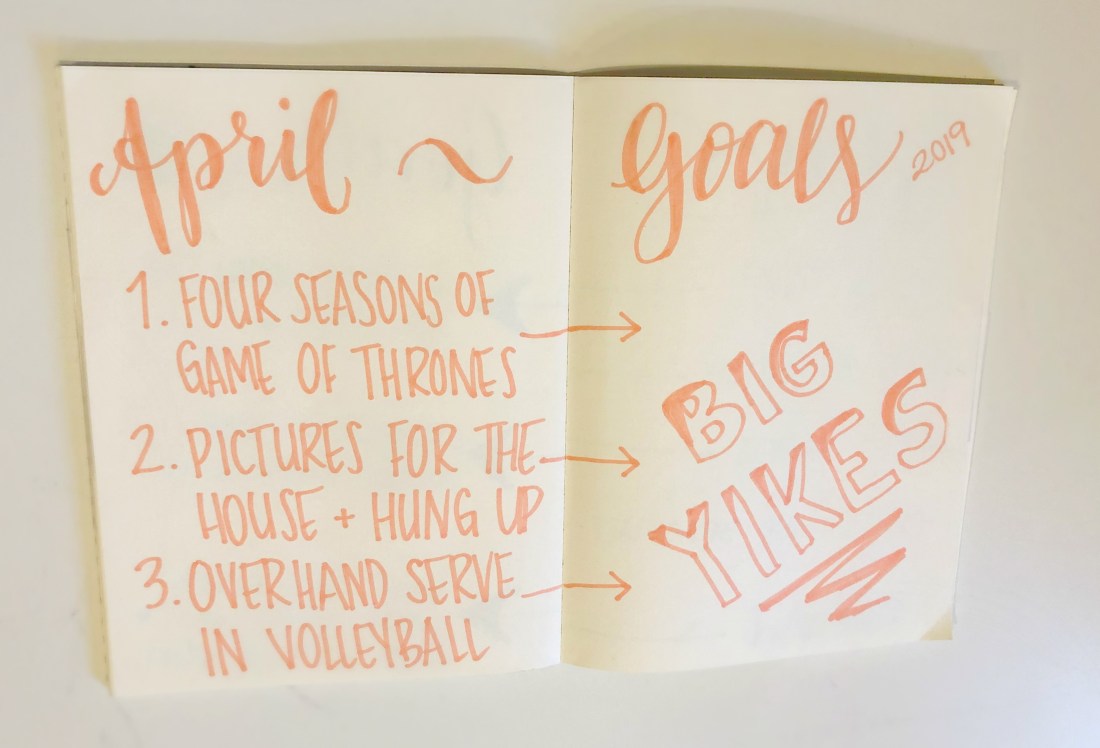 April ~ Goals 2019
1. FOUR SEASONS OF
GAME OF THRONES
2. PICTURES FOR THE
HOUSE + HUNG UP
3. OVERHAND SERVE
IN VOLLEYBALL
BIG
YIKES